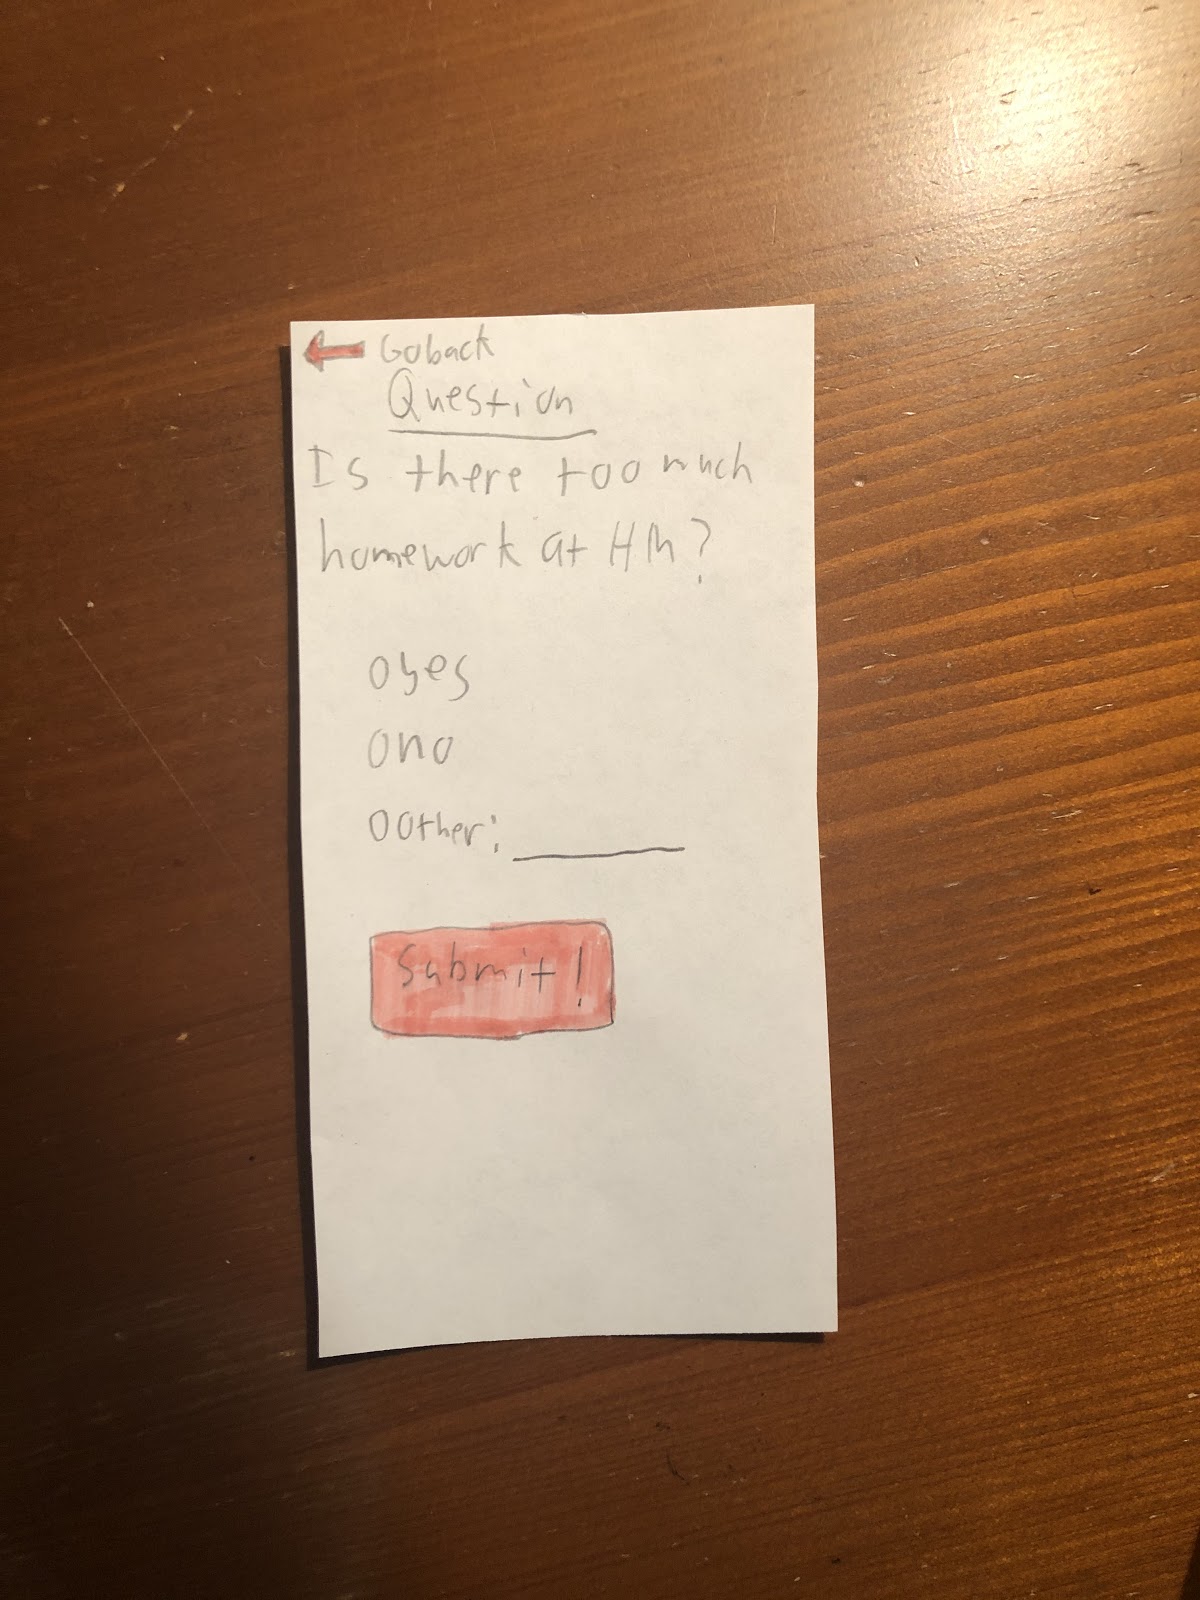 Go back
Question
Is there too much
homework at HM?
o yes
o no
o Other: ______
Submit!